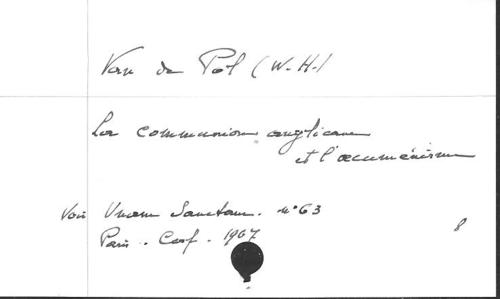 Van de Pol (W.H.)
La communion anglicane
et l'œcuménisme
Voir Unam Sanctam. n° 63
Paris. Cerf. 1967
8